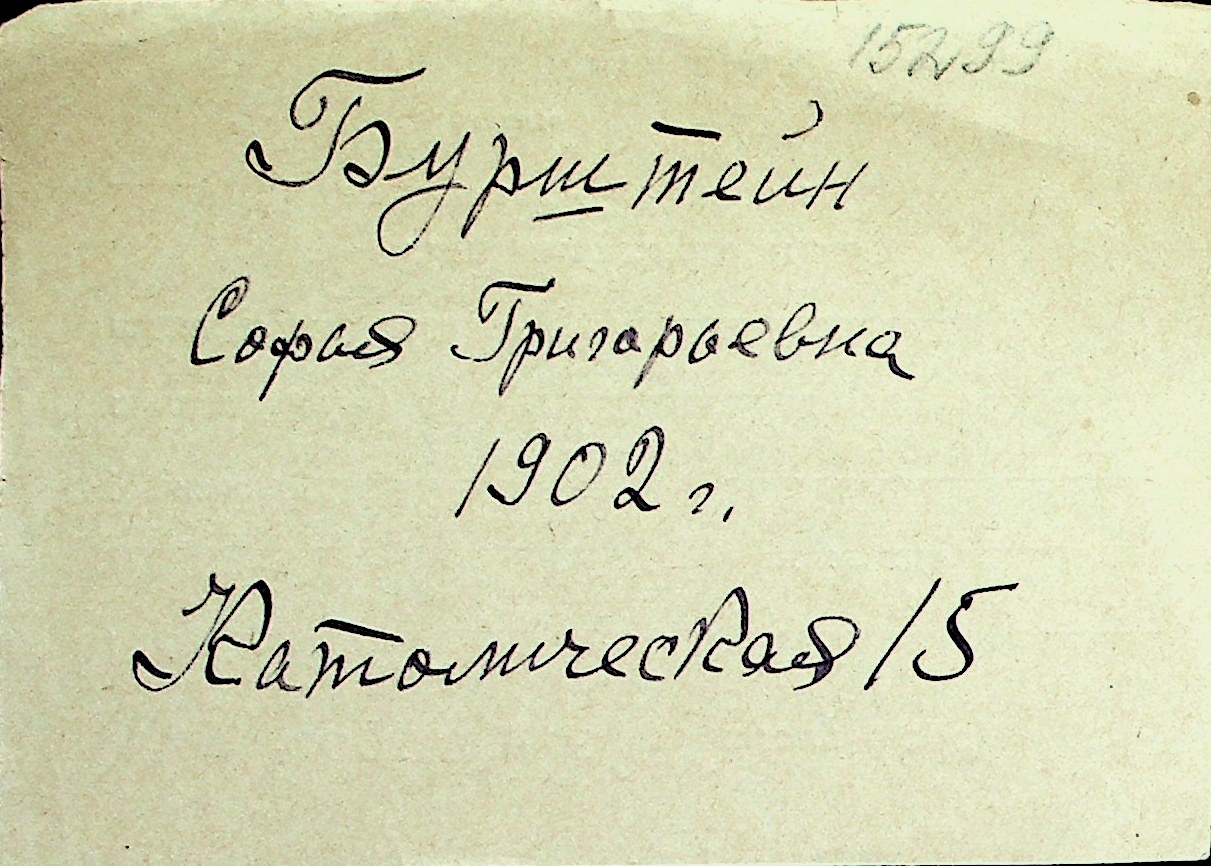 15299
Бурштейн
Софья Григорьевна
1902 г.
Католическая 15